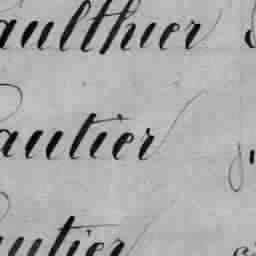 aulthier
autier
autier